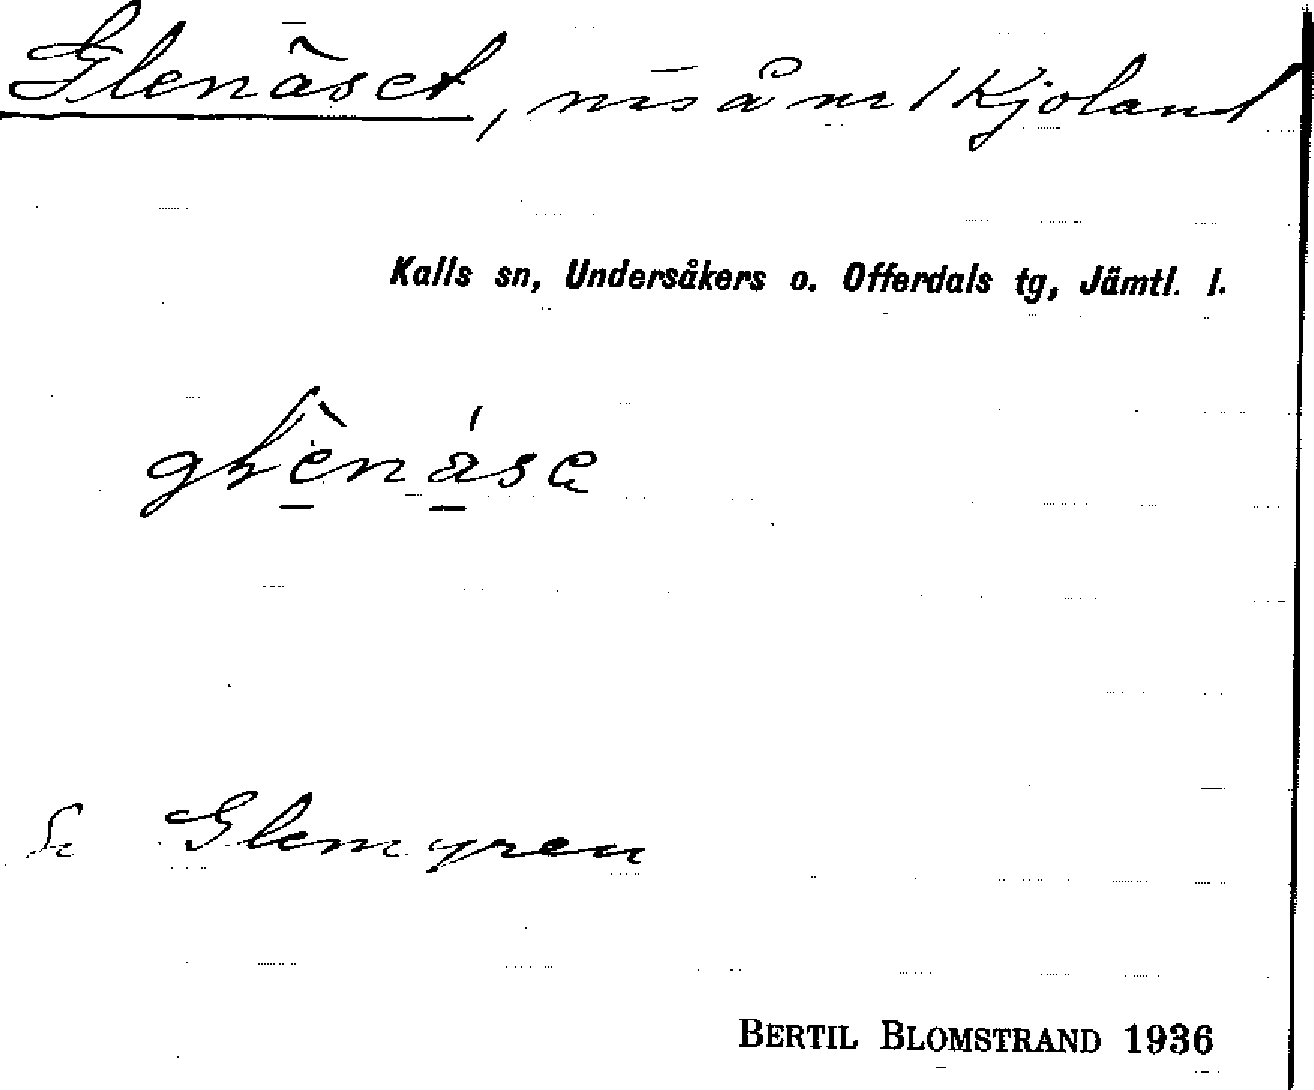 Glenäset, näs å nr 1 Kjoland
Kalls sn, Undersåkers o. Offerdals tg, Jämtl. l.
Se Glenmyren
BERTIL BLOMSTRAND 1936